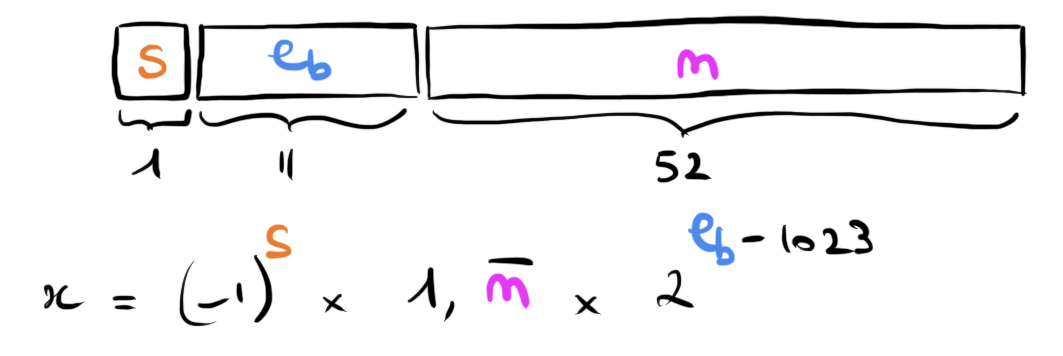 s e_b m
1 11 52
x = (-1)^s × 1, m̅ × 2^{e_b - 1023}